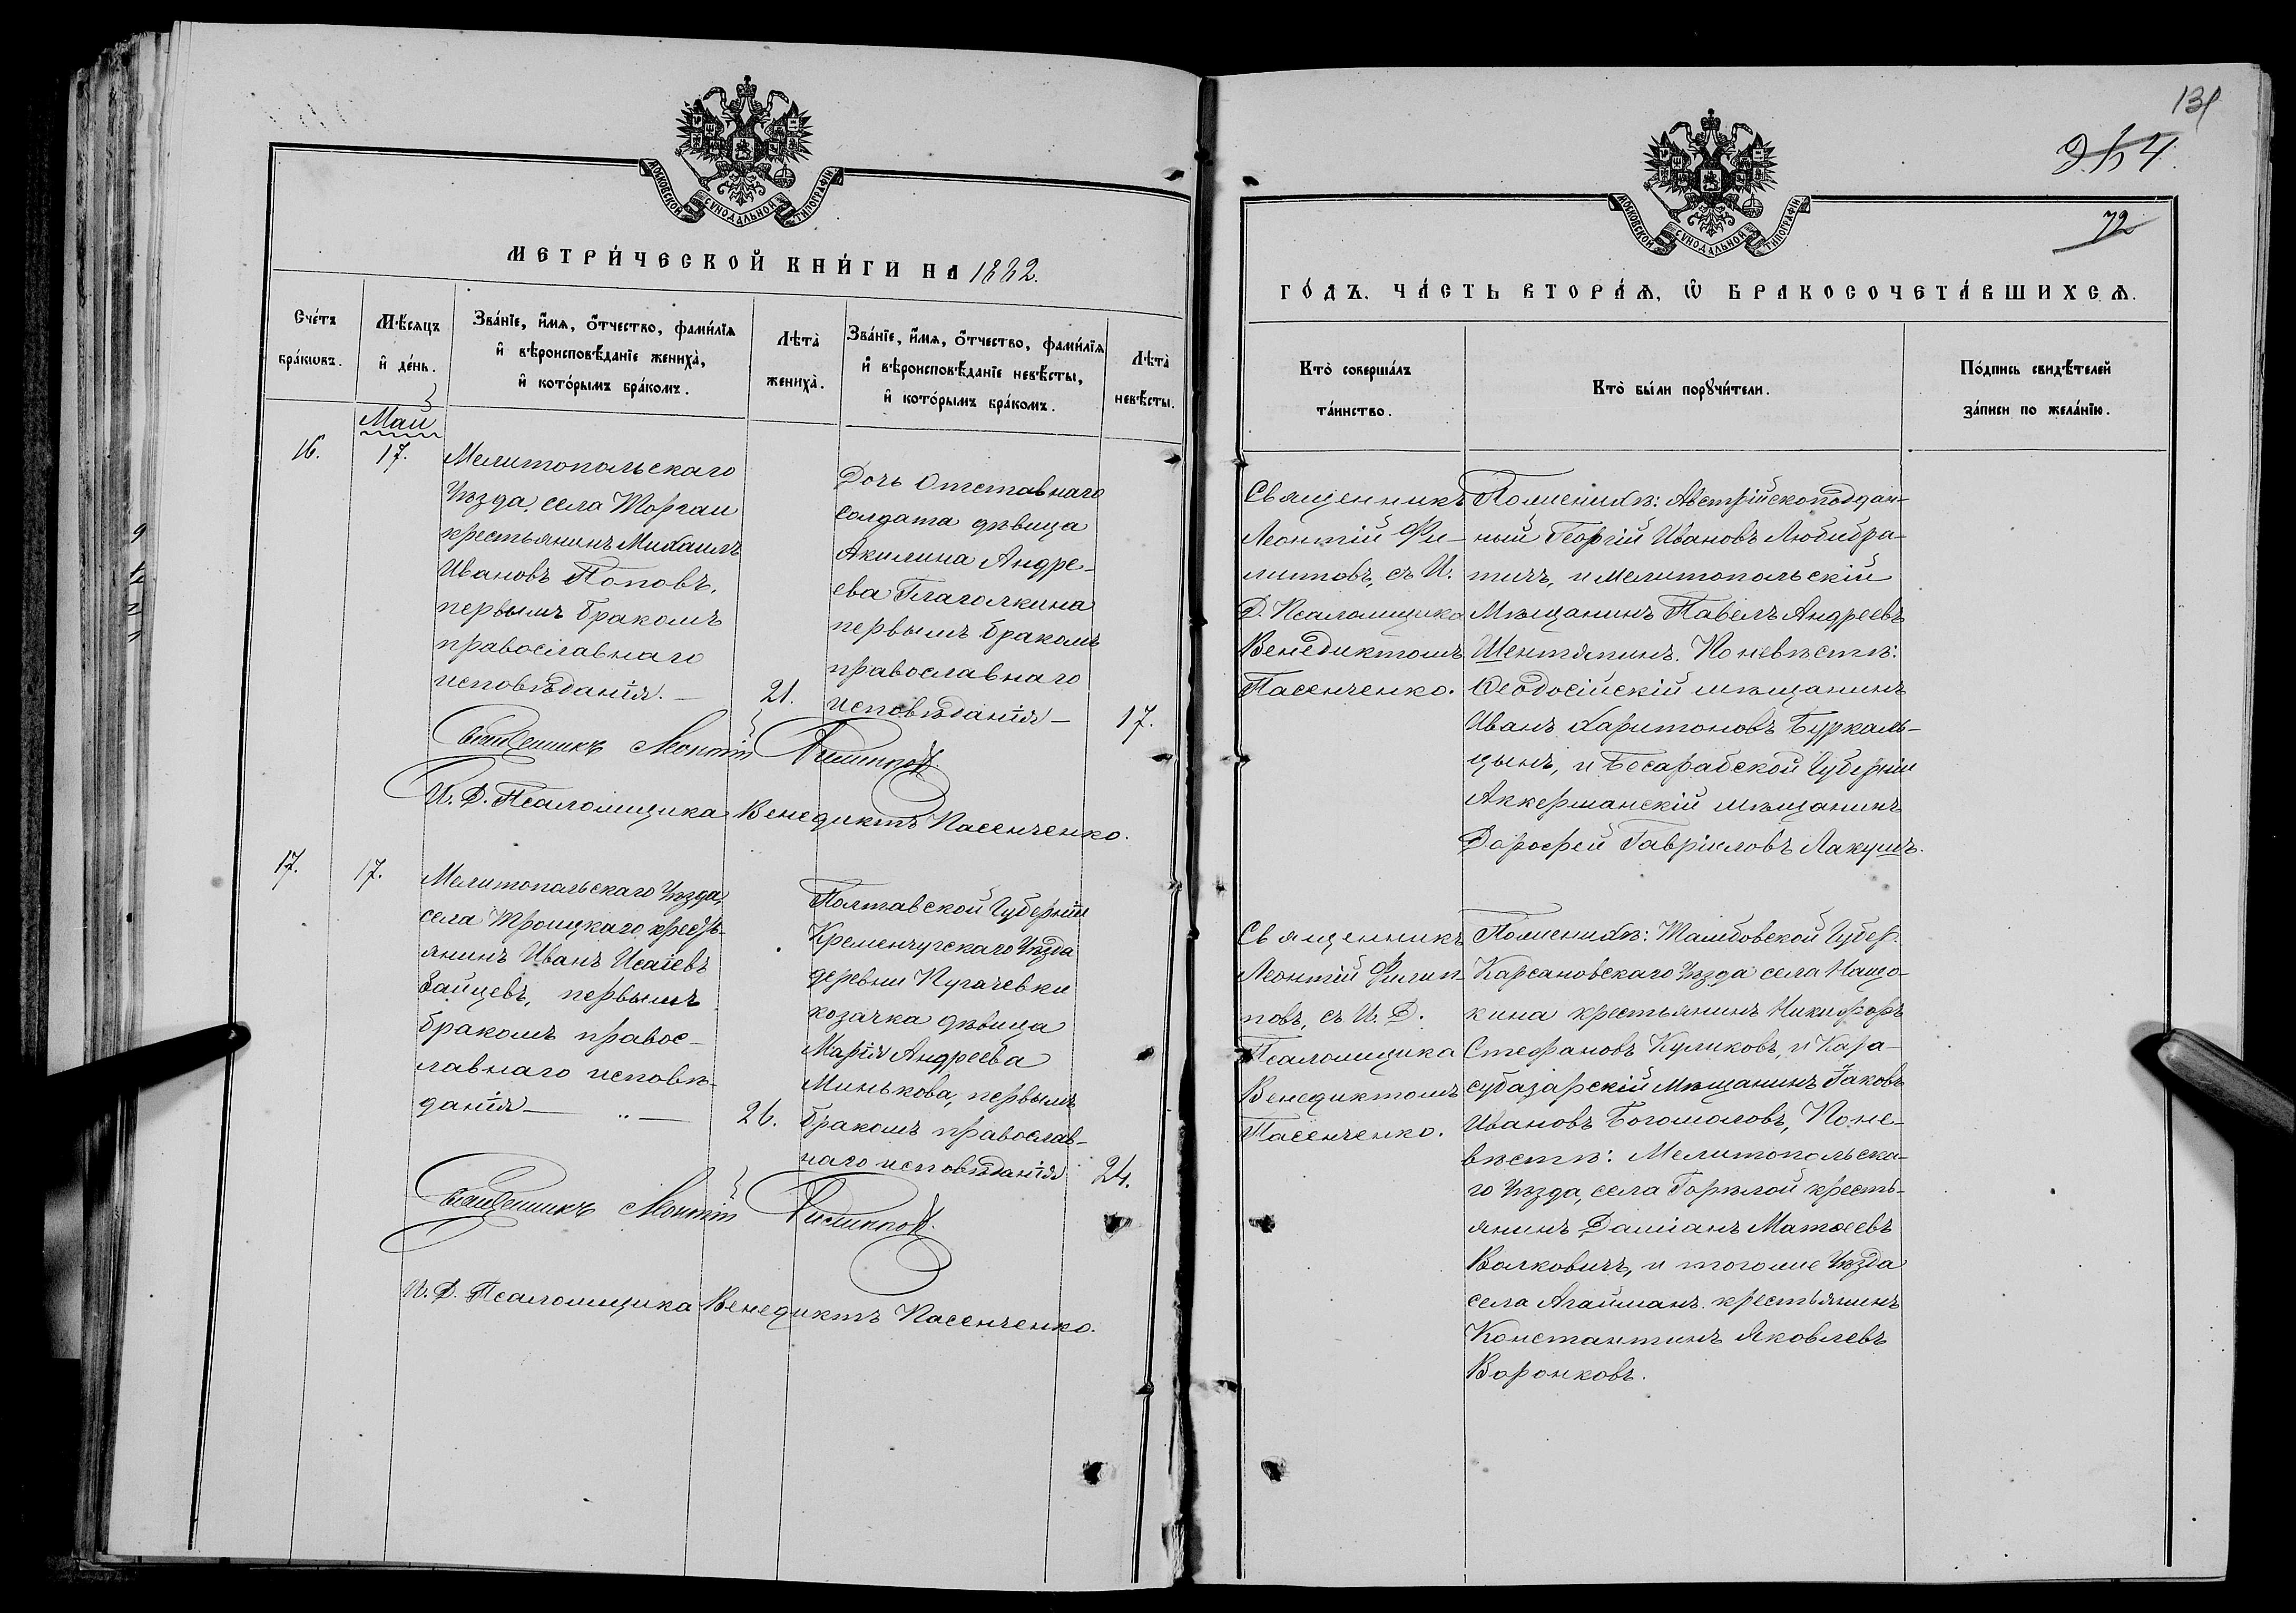 МОСКОВСКОЙ СѴНОДАЛЬНОЙ ТИПОГРАФІИ
МЕТРИ́ЧЕСКОЙ КНИ́ГИ НА 1882.
Сче́тъ бра́кѡвъ.
Мѣ́сяцъ и҆ де́нь.
Зва́нїе, и҆́мѧ, ѻ҆́тчество, фами́лїѧ
и҆ вѣроисповѣ́данїе жениха̀,
и҆ кото́рымъ бра́комъ.
Лѣта̀ жениха̀.
Зва́нїе, и҆́мѧ, ѻ҆́тчество, фами́лїѧ
и҆ вѣроисповѣ́данїе невѣ́сты,
и҆ кото́рымъ бра́комъ.
Лѣта̀ невѣ́сты.
Май
16.
17.
Мелитопольскаго
Уѣзда, села Торгаи
крестьянинъ Михаилъ
Ивановъ Поповъ,
первымъ бракомъ
православнаго
исповѣданія. —
21.
Дочь Отставнаго
солдата дѣвица
Акилина Андре-
ева Глаголкина
первымъ бракомъ
православнаго
исповѣданія —
17.
Священникъ Леонтій Филиповъ.
И. Д. Псаломщика Венедиктъ Пасенченко.
17.
17.
Мелитопальскаго Уѣзда,
села Троицкаго кресть-
янинъ Иванъ Исаіевъ
Зайцевъ, первымъ
бракомъ правос-
лавнаго исповѣ-
данія — „ —
26.
Полтавской Губерніи
Кременчугскаго Уѣзда
деревни Пугачевки
козачка дѣвица
Марія Андреева
Минькова, первымъ
бракомъ православ-
наго исповѣданія
24.
Священникъ Леонтій Филиповъ.
И. Д. Псаломщика Венедиктъ Пасенченко.
131
72
МОСКОВСКОЙ СѴНОДАЛЬНОЙ ТИПОГРАФІИ
ГО́ДЪ. ЧА́СТЬ ВТОРА́Ѧ, Ѡ҆ БРАКОСОЧЕТА́ВШИХСѦ.
Кто̀ соверша́лъ
та́инство.
Кто̀ бы́ли порꙋчи́тели.
По́дпись свидѣ́телей
за́писи по жела́нїю.
Священникъ
Леонтій Фи-
липовъ, съ И.
Д. Псаломщика
Венедиктомъ
Пасенченко.
Поженихѣ: Австрійскоподдан-
ный Георгій Ивановъ Любибра-
тичъ, и Мелитопольскій
Мѣщанинъ Павелъ Андреевъ
Шентяпинъ. Поневѣстѣ:
Ѳеодосійскій мѣщанинъ
Иванъ Харитоновъ Буркаль-
цынъ, и Бесарабской Губерніи
Аккерманскій мѣщанинъ
Дорофей Гавріиловъ Лакушъ.
Священникъ
Леонтій Филип-
повъ, съ И. Д.
Псаломщика
Венедиктомъ
Пасенченко.
Поженихѣ: Тамбовской Губер.
Карсановскаго Уѣзда села Нащо-
кина крестьянинъ Никифоръ
Стефановъ Куликовъ, и Кара-
субазарскій Мѣщанинъ Іаковъ
Ивановъ Богомоловъ, Поне-
вѣстѣ: Мелитопольска-
го Уѣзда, села Горѣлой кресть-
янинъ Даміанъ Матѳеевъ
Волковичъ, и тогоже Уѣзда
села Агайманъ крестьянинъ
Константинъ Яковлевъ
Воронковъ.